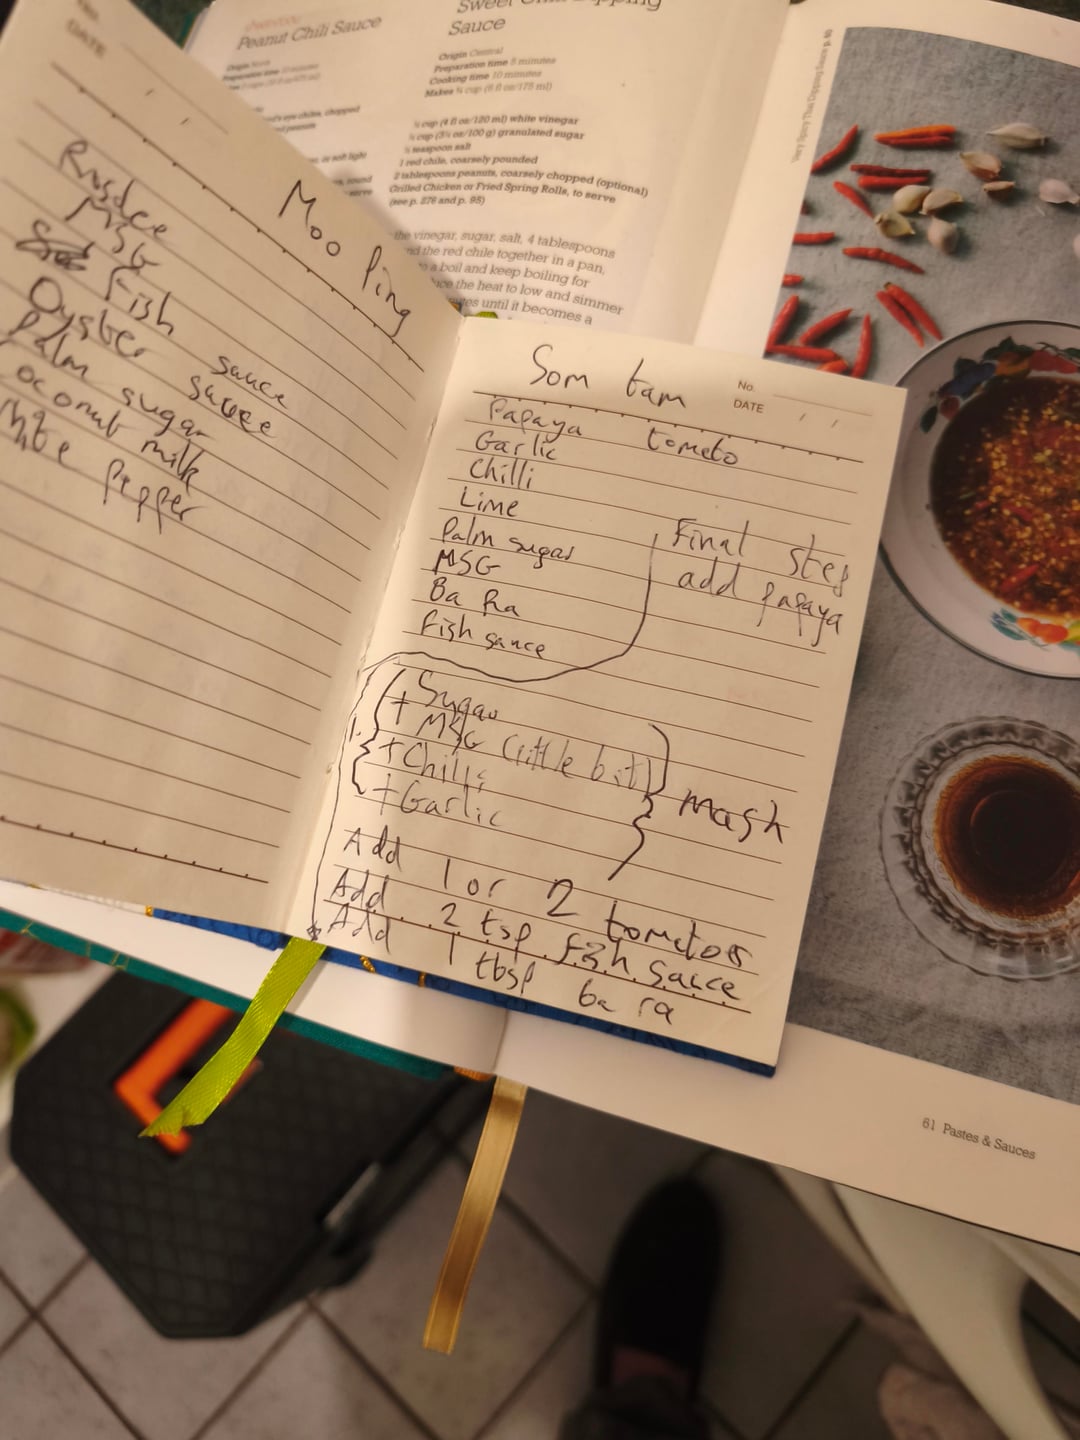 No.
DATE
Moo Ping
Rosdee
MSG
Fish sauce
Oyster sauce
Palm sugar
oconut milk
hite Pepper
Som tam
No.
DATE
Papaya tometo
Garlic
Chilli
Lime
Palm sugar
MSG
Ba Ra
Fish sauce
Final step
add papaya
1.
+ Sugar
+ MSG (little bit)
+ Chilli
+ Garlic
mash
Add 1 or 2 tometoes
Add 2 tsp fish sauce
Add 1 tbsp ba ra
Peanut Chili Sauce
Origin
Preparation time
bird's eye chiles, chopped
peanuts
or soft light
round
serve
Sweet Chili Dipping
Sauce
Origin Central
Preparation time 5 minutes
Cooking time 10 minutes
Makes ¾ cup (6 fl oz/175 ml)
½ cup (4 fl oz/120 ml) white vinegar
½ cup (3½ oz/100 g) granulated sugar
½ teaspoon salt
1 red chile, coarsely pounded
2 tablespoons peanuts, coarsely chopped (optional)
Grilled Chicken or Fried Spring Rolls, to serve
(see p. 276 and p. 95)
the vinegar, sugar, salt, 4 tablespoons
nd the red chile together in a pan,
o a boil and keep boiling for
uce the heat to low and simmer
utes until it becomes a
Very Spicy Thai Dipping Sauce p. 60
61 Pastes & Sauces